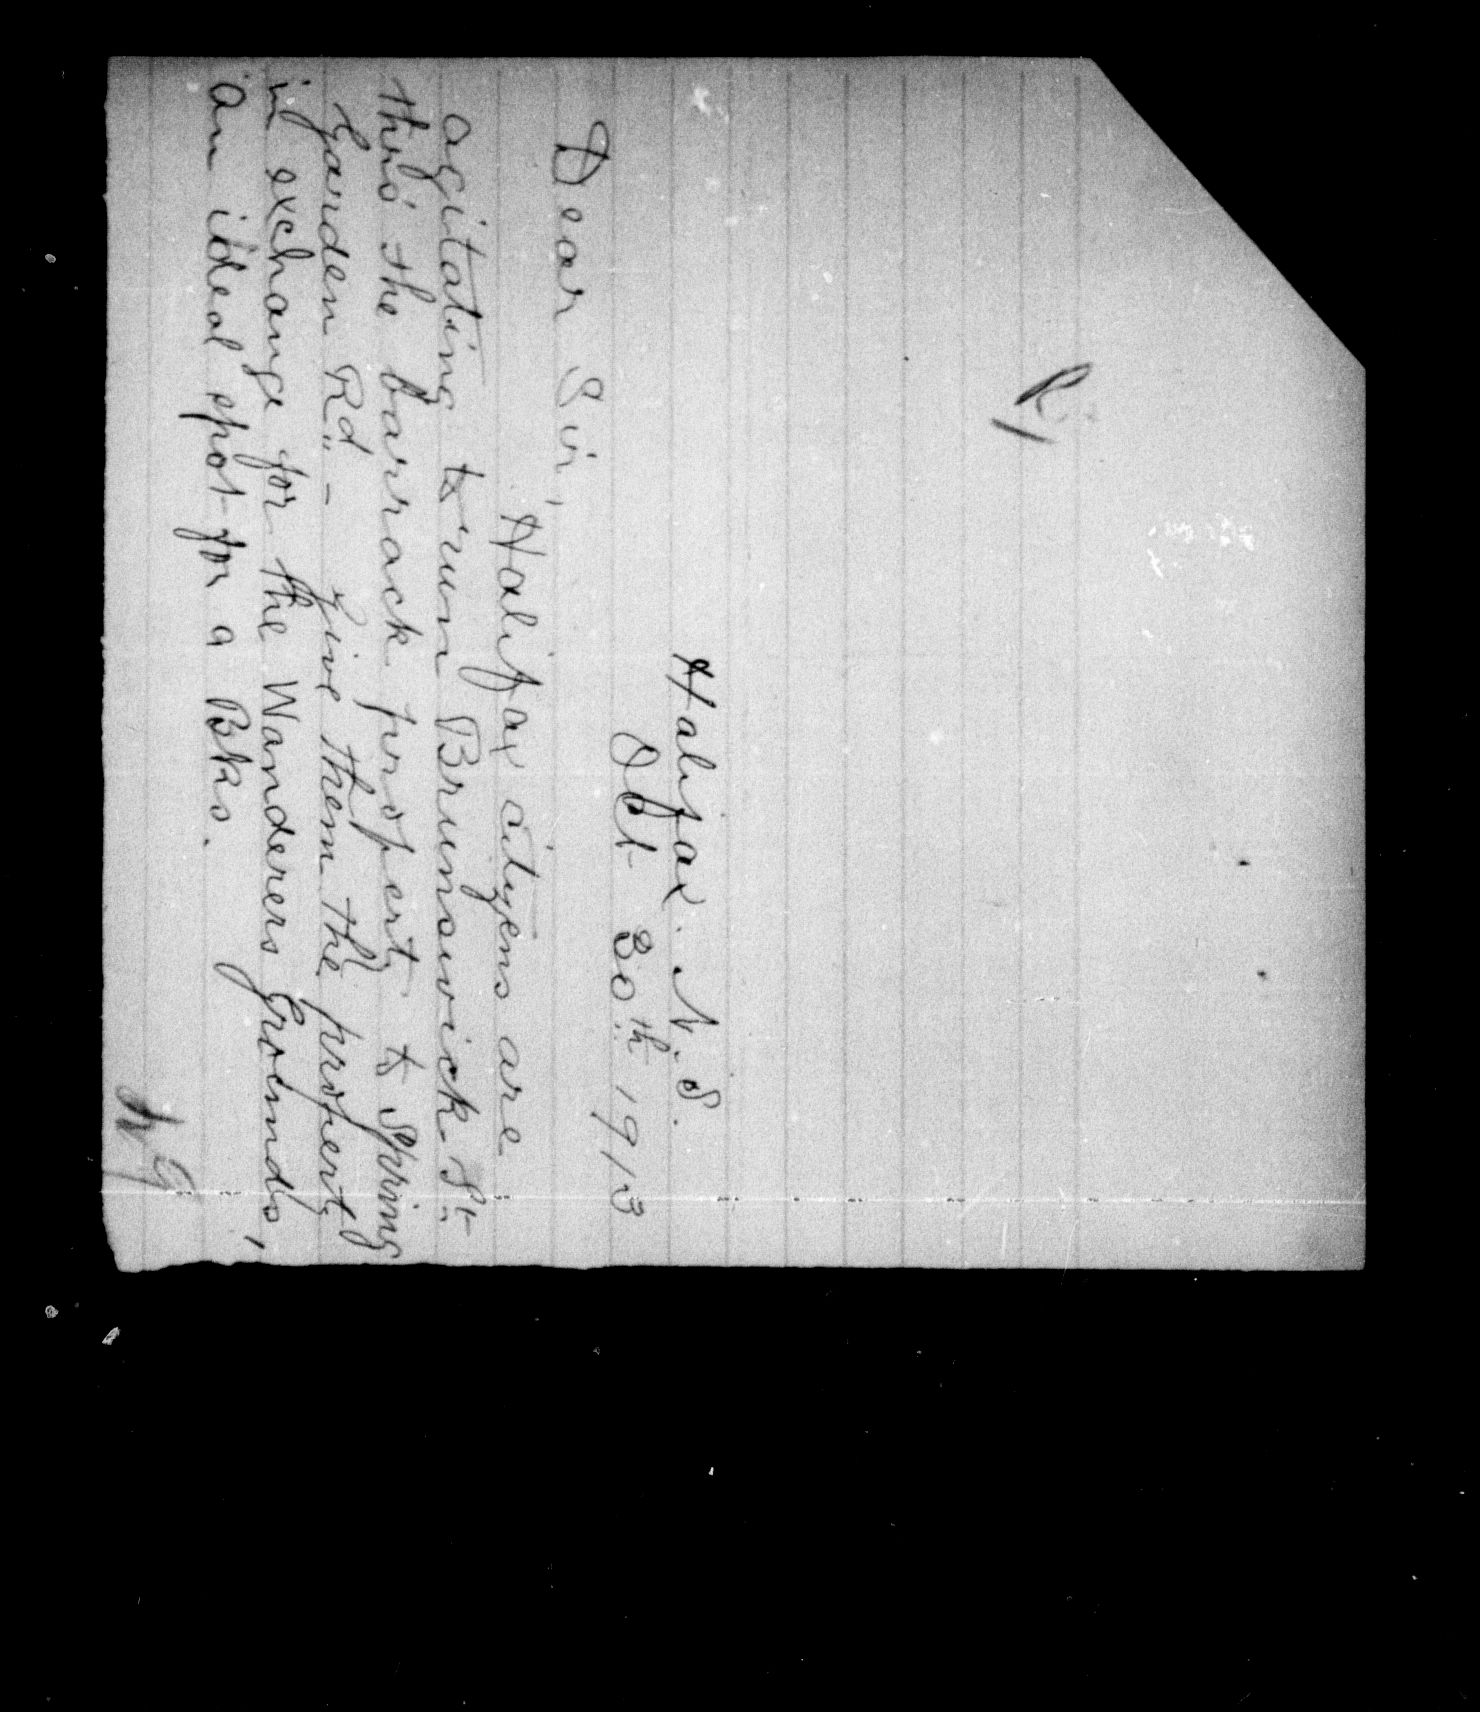 Halifax. N.S.
Oct 30th 1913
Dear Sir,
Halifax citizens are
agitating to run Brunswick St.
thro' the barrack property to Spring
Garden Rd. - Give them the property
in exchange for the Wanderers Grounds,
an ideal spot for a Bks.